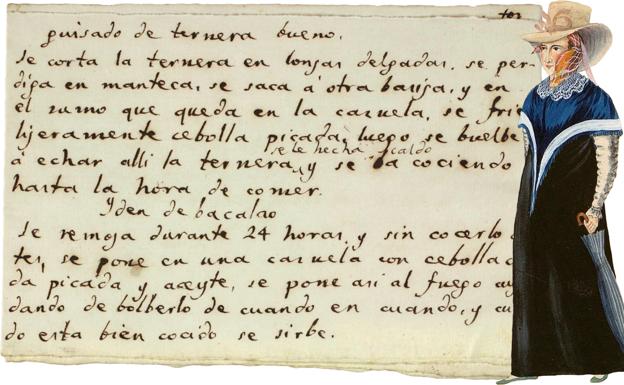 101
guisado de ternera bueno.
se corta la ternera en lonjas delgadas, se per-
diga en manteca, se saca á otra basija, y en
el zumo que queda en la cazuela, se frie
lijeramente cebolla picada, luego se buelbe
se le hecha caldo
á echar alli la ternera, y se ba cociendo
hasta la hora de comer.
Yden de bacalao
se remoja durante 24 horas, y sin cocerlo
tes, se pone en una cazuela con cebolla
da picada y aceyte, se pone asi al fuego
dando de bolberlo de cuando en cuando, y
do esta bien cocido se sirbe.